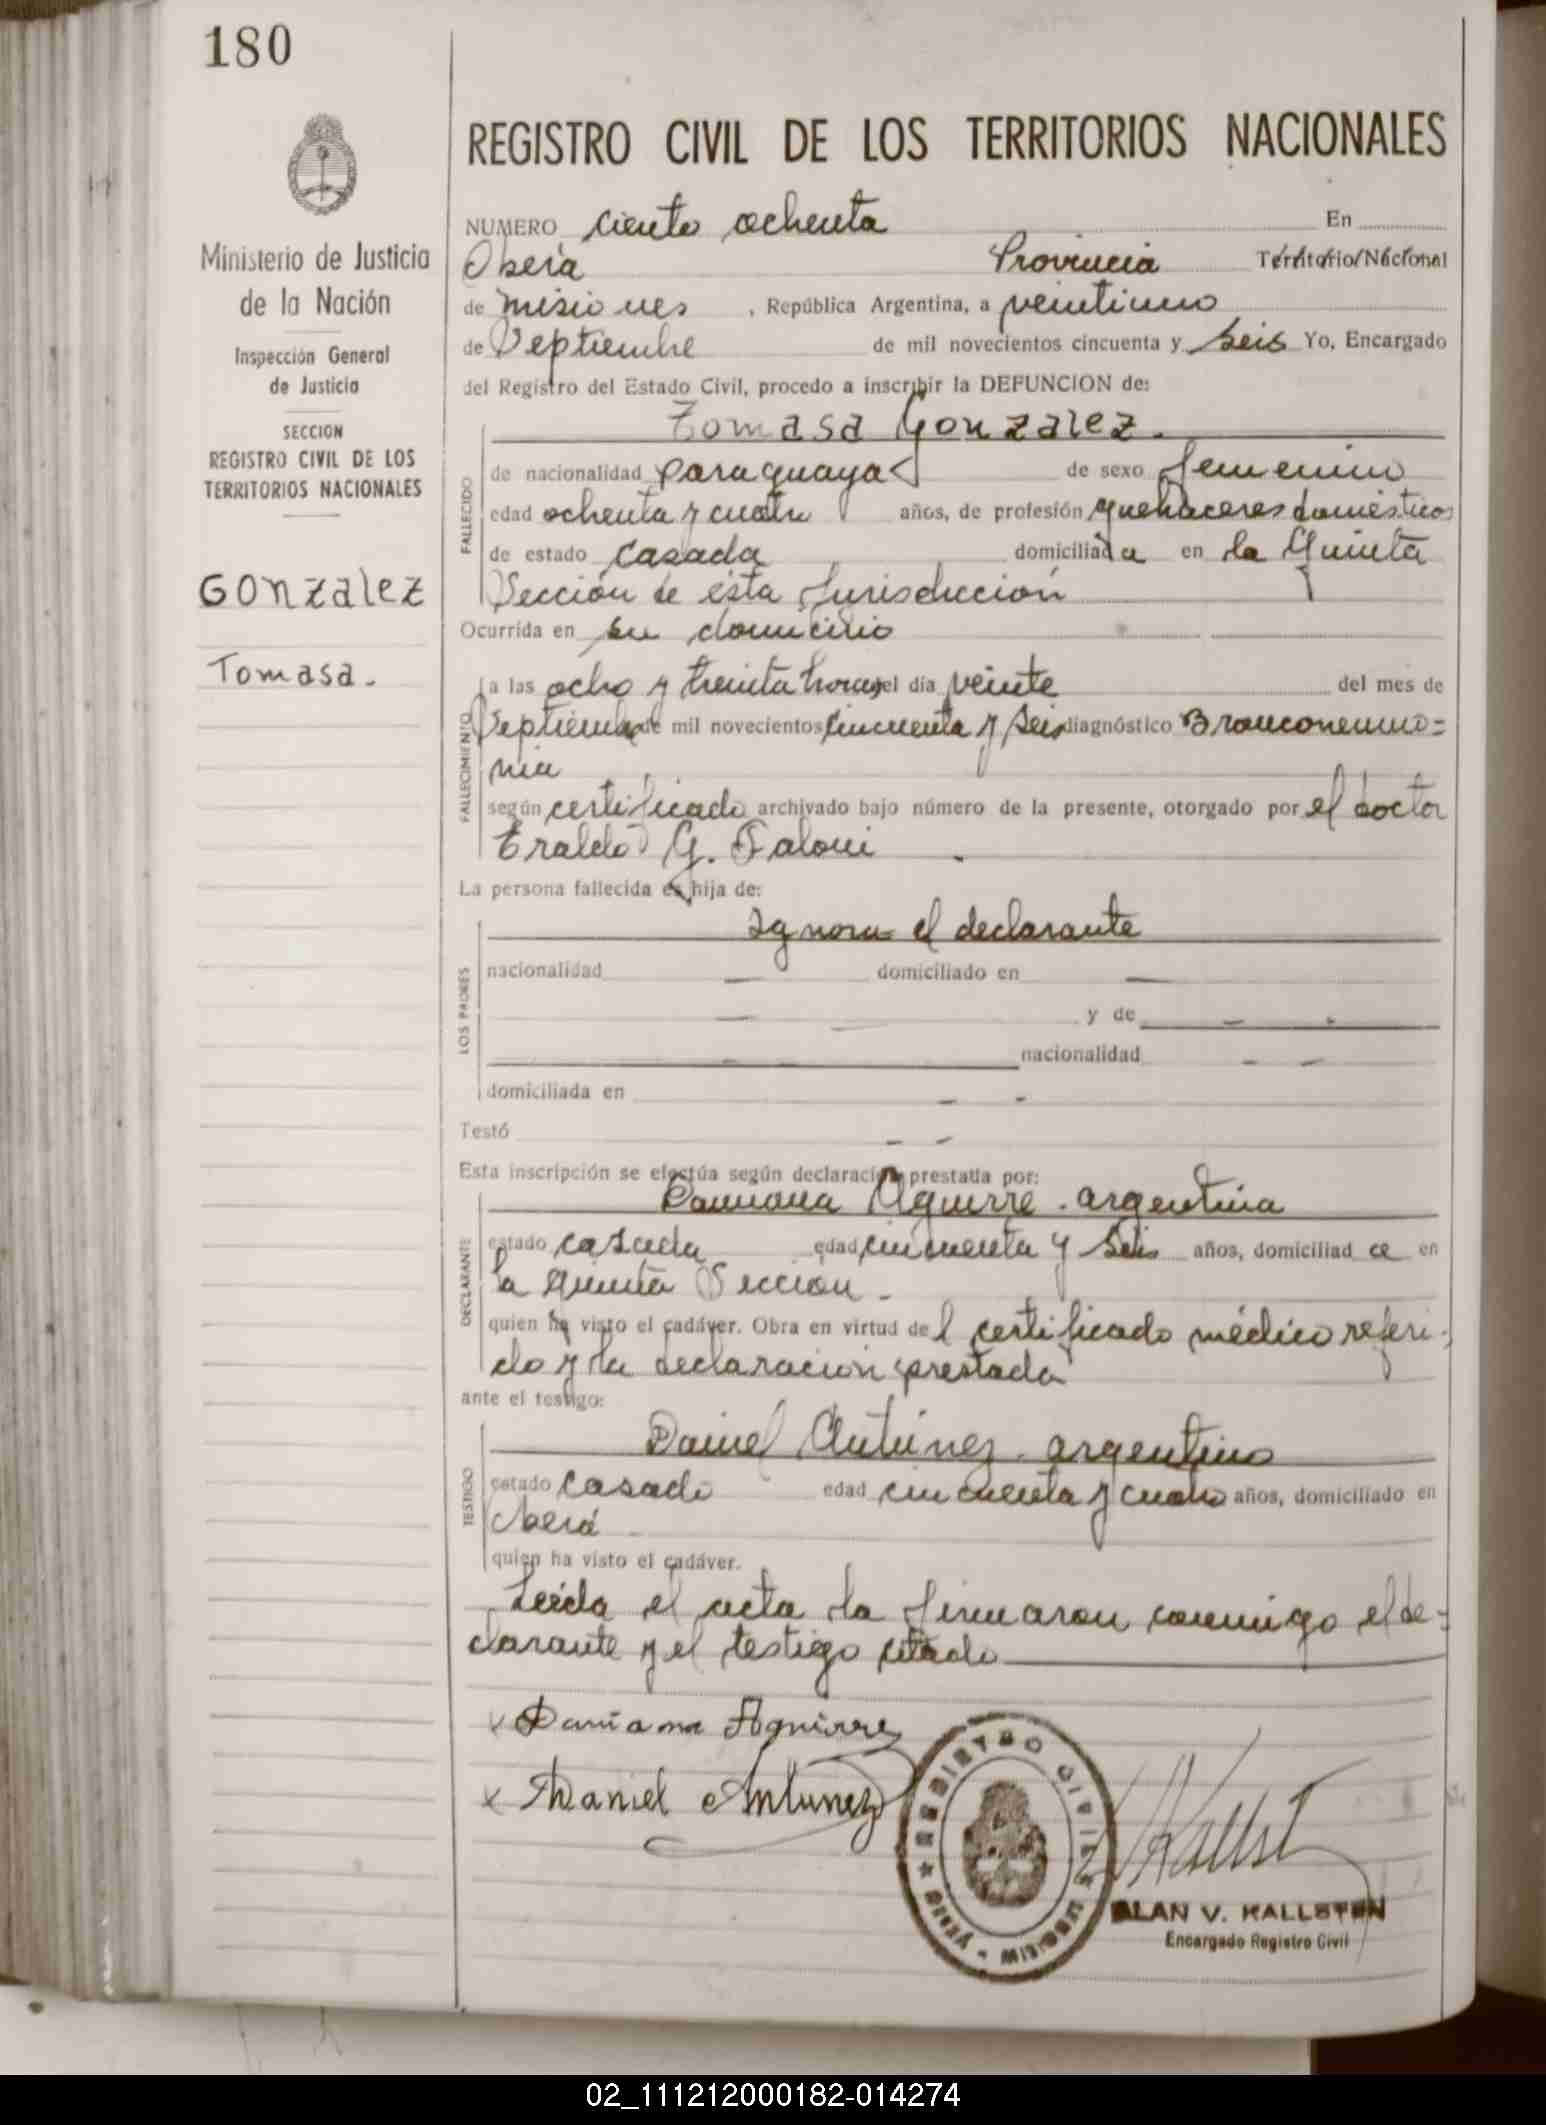 180
REGISTRO CIVIL DE LOS TERRITORIOS NACIONALES
Ministerio de Justicia
de la Nación
Inspección General
de Justicia
SECCION
REGISTRO CIVIL DE LOS
TERRITORIOS NACIONALES
GONzalez
Tomasa.
NUMERO ciento ochenta En
Oberá Provincia Territorio Nacional
de misiones , República Argentina, a veintiuno
de Septiembre de mil novecientos cincuenta y seis Yo, Encargado
del Registro del Estado Civil, procedo a inscribir la DEFUNCION de:
Tomasa Gonzalez.
FALLECIDO
de nacionalidad paraguaya de sexo femenino
edad ochenta y cuatro años, de profesión quehaceres domésticos
de estado casada domiciliada en la Quinta
Sección de ésta Jurisdicción
Ocurrida en su domicilio
FALLECIMIENTO
a las ocho y treinta horas del día veinte del mes de
Septiembre de mil novecientos cincuenta y seis diagnóstico Bronconeumo=
nia
según certificado archivado bajo número de la presente, otorgado por el doctor
Eraldo G.
La persona fallecida es hija de:
LOS PADRES
Ignora el declarante
nacionalidad — domiciliado en —
— y de —
— nacionalidad —
domiciliada en —
Testó —
Esta inscripción se efectúa según declaración prestada por:
DECLARANTE
Damiana Aguirre - argentina
estado casada edad cincuenta y seis años, domiciliada en
la Quinta Sección -
quien ha visto el cadáver. Obra en virtud del certificado médico referi-
do y la declaración prestada
ante el testigo:
TESTIGO
Daniel Antúnez - argentino
estado casado edad cincuenta y cuatro años, domiciliado en
Oberá
quien ha visto el cadáver.
Leída el acta la firmaron conmigo el de-
clarante y el testigo citado
x Damiana Aguirre
x Daniel Antunez
REGISTRO CIVIL
OBERA - MISIONES
ALAN V. KALLSTEN
Encargado Registro Civil
02_111212000182-014274